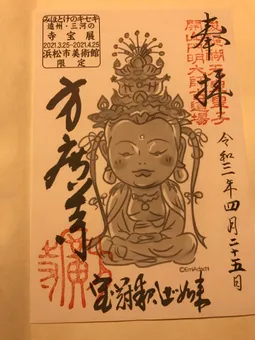 みほとけのキセキ
遠州・三河の
寺宝展
2021.3.25-2021.4.25
浜松市美術館
限定
奉拝
令和三年四月二十五日
方廣寺
宝冠釈迦如来